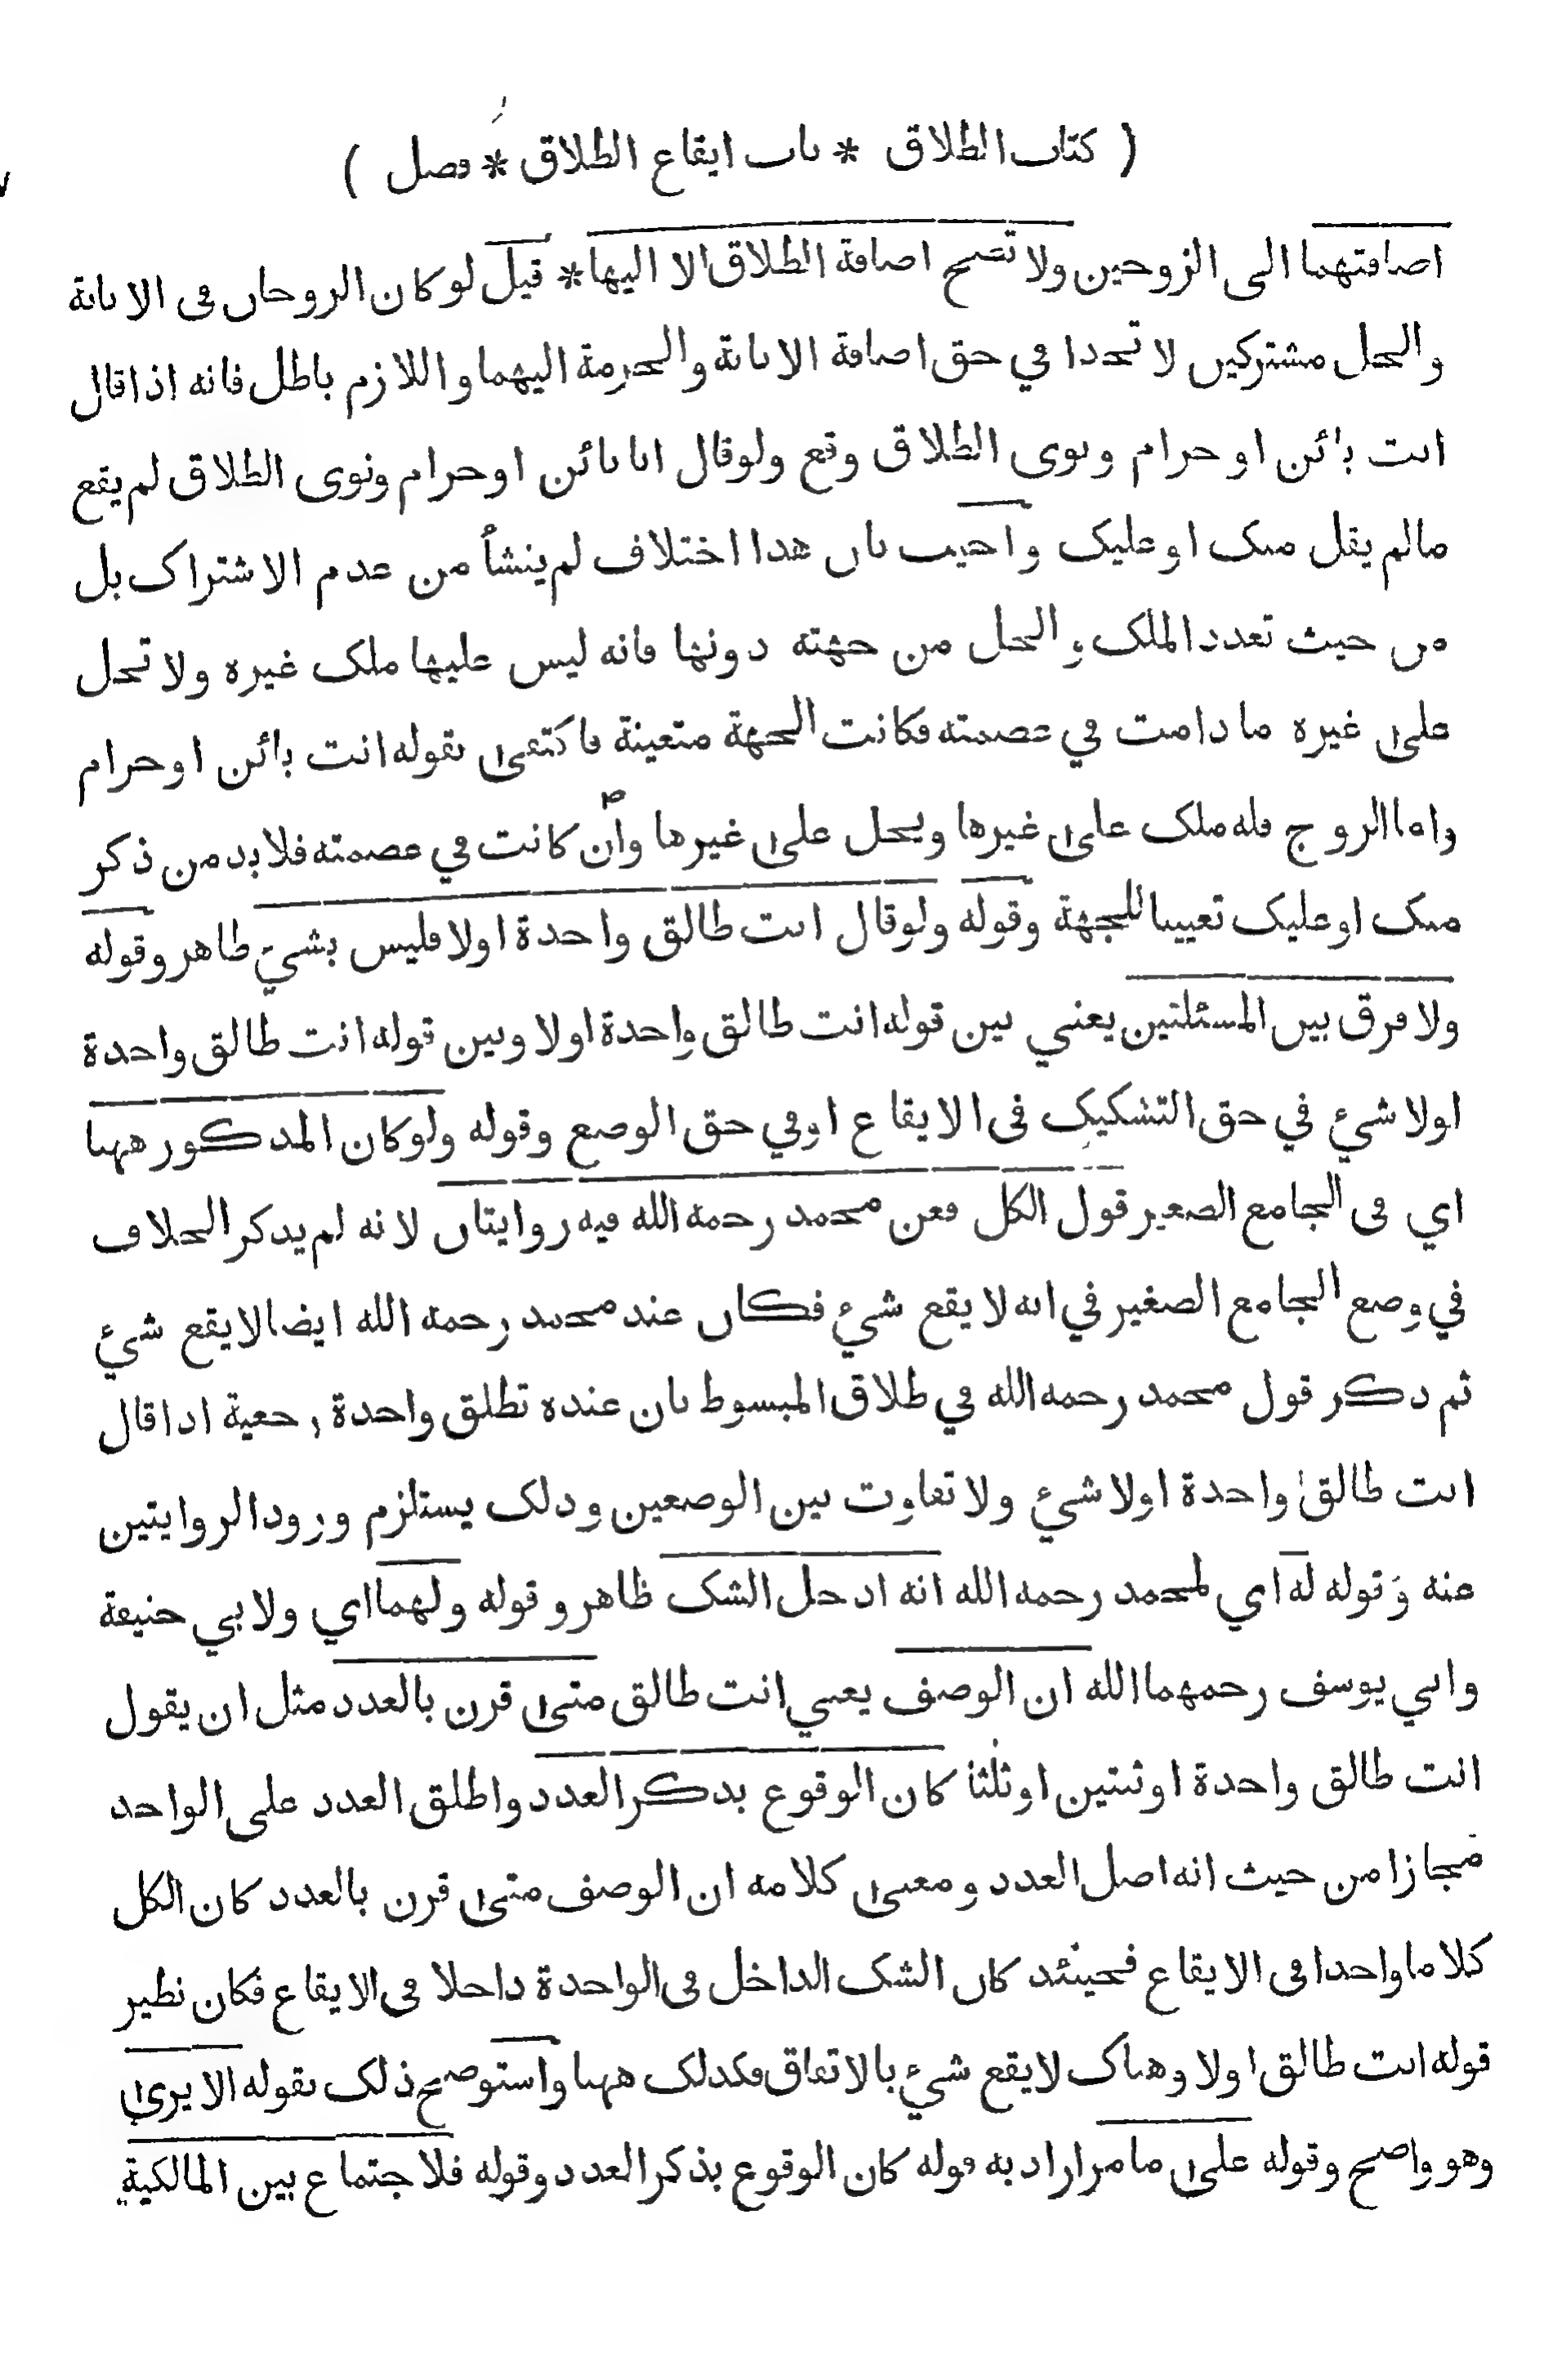 ( كتاب الطلاق * باب ايقاع الطلاق * فصل )
اضافتهما الى الزوجين ولا تصح اضافة الطلاق الا اليها * قيل لو كان الزوجان في الابانة
والحل مشتركين لاتحدا في حق اضافة الابانة والحرمة اليهما واللازم باطل فانه اذا قال
انت بائن او حرام ونوى الطلاق وقع ولو قال انا بائن او حرام ونوى الطلاق لم يقع
مالم يقل منك او عليك واجيب بان هذا اختلاف لم ينشأ من عدم الاشتراك بل
من حيث تعدد الملك والحل من جهته دونها فانه ليس عليها ملك غيره ولا تحل
على غيره ما دامت في عصمته فكانت الجهة متعينة فاكتفى بقوله انت بائن او حرام
واما الزوج فله ملك على غيرها ويحل على غيرها وان كانت في عصمته فلا بد من ذكر
منك او عليك تعيينا للجهة وقوله ولو قال انت طالق واحدة اولا فليس بشيئ ظاهر وقوله
ولا فرق بين المسئلتين يعني بين قوله انت طالق واحدة اولا وبين قوله انت طالق واحدة
اولا شيئ في حق التشكيك في الايقاع او في حق الوضع وقوله ولو كان المذكور ههنا
اي في الجامع الصغير قول الكل فعن محمد رحمه الله فيه روايتان لانه لم يذكر الخلاف
في وضع الجامع الصغير في انه لا يقع شيئ فكان عند محمد رحمه الله ايضا لا يقع شيئ
ثم ذكر قول محمد رحمه الله في طلاق المبسوط بان عنده تطلق واحدة رجعية اذا قال
انت طالق واحدة اولا شيئ ولا تفاوت بين الوضعين وذلك يستلزم ورود الروايتين
عنه وقوله له اي لمحمد رحمه الله انه ادخل الشك ظاهر وقوله ولهما اي ولابي حنيفة
وابي يوسف رحمهما الله ان الوصف يعني انت طالق متى قرن بالعدد مثل ان يقول
انت طالق واحدة او ثنتين او ثلثا كان الوقوع بذكر العدد واطلق العدد على الواحد
مجازا من حيث انه اصل العدد ومعنى كلامه ان الوصف متى قرن بالعدد كان الكل
كلاما واحدا في الايقاع فحينئذ كان الشك الداخل في الواحدة داخلا في الايقاع فكان نظير
قوله انت طالق اولا وهناك لا يقع شيئ بالاتفاق فكذلك ههنا واستوضح ذلك بقوله الا يرى
وهو واضح وقوله على ما مر اراد به قوله كان الوقوع بذكر العدد وقوله فلاجتماع بين المالكية